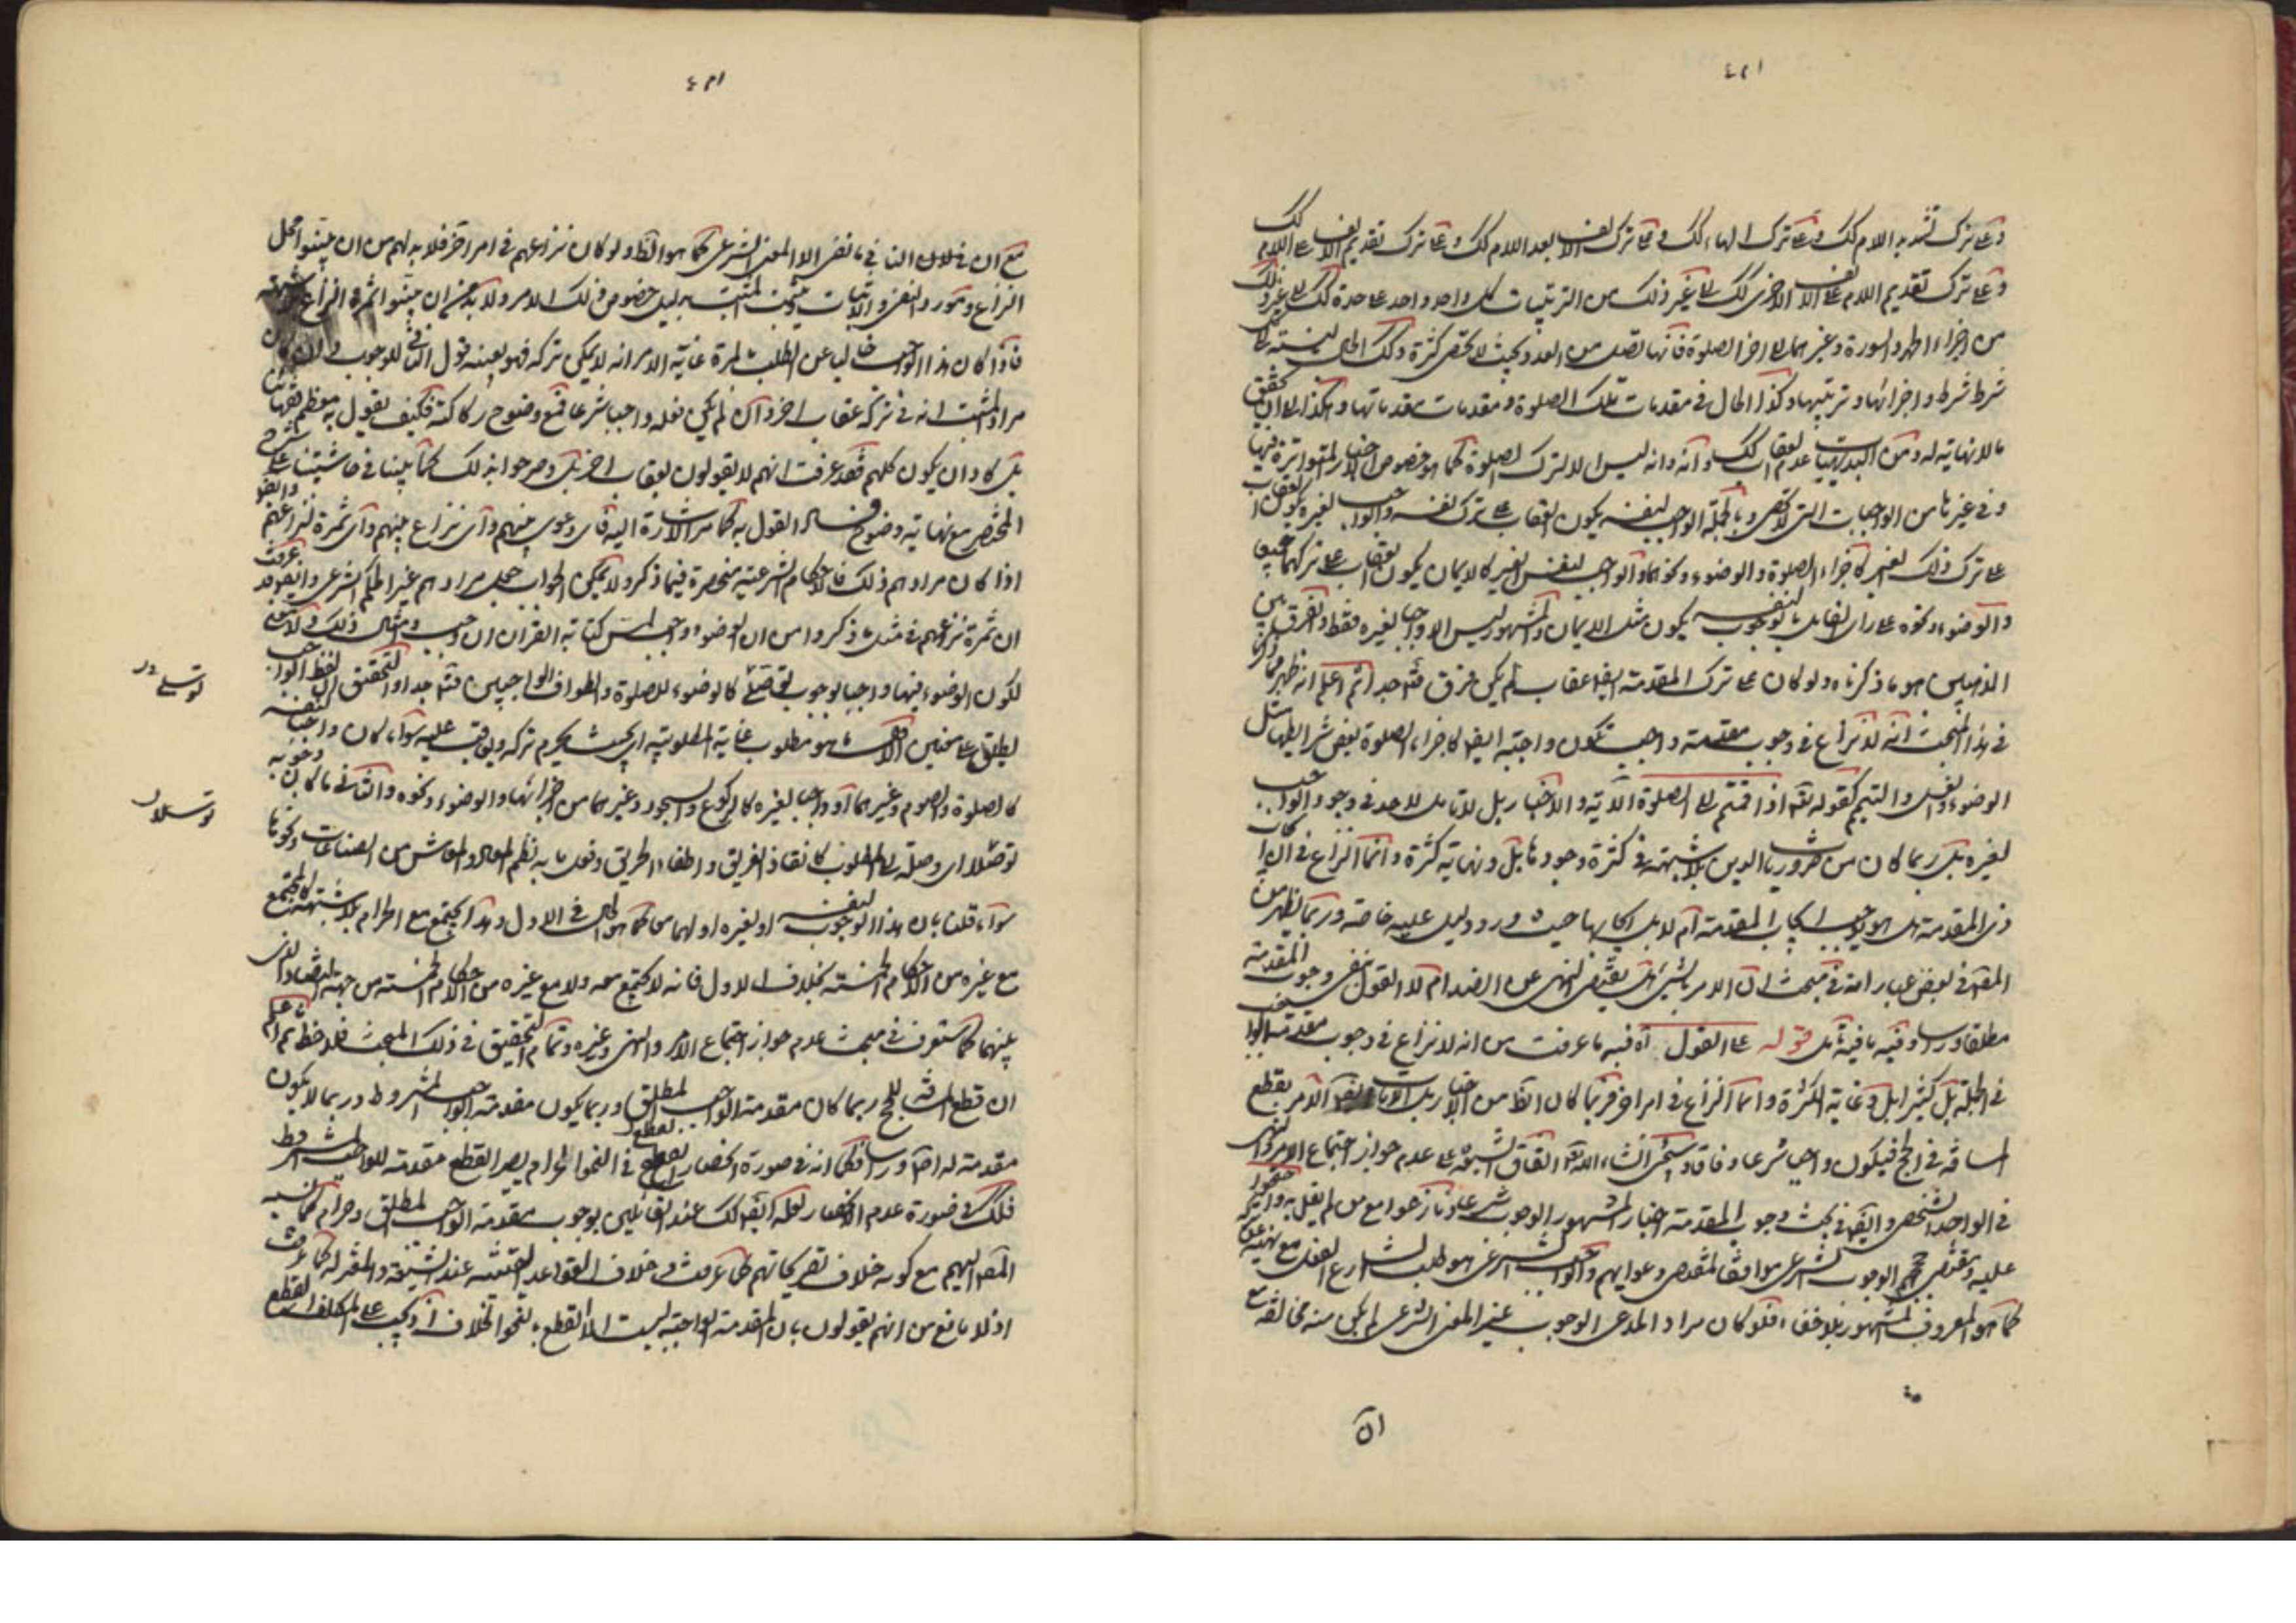 وعلى ترك تشديد اللام كك وعلى ترك الهاء كك وعلى ترك الالف بعد اللام كك وعلى ترك تقديم الالف على اللام
وعلى ترك تقديم اللام على الالف الاخرى كك الى غير ذلك من الترتيبات كل واحد واحد على حدة كك الى غير ذلك
من اجزاء الحمد والسورة وغيرهما الى اخر الصلوة فانها تصل من العدد بحيث لا تحصى كثرة وكك الحال بالنسبة الى
شرط شرط واجزائها وترتيبها وكذا الحال في مقدمات تلك الصلوة ومقدمات مقدماتها وهكذا الى ان يتحقق
ما لا نهاية له ومن البديهيات عدم العقاب كك وانه ليس الا لترك الصلوة كما هو خصوص الاخبار المتواترة فيها
وفي غيرها من الواجبات التي لا تحصى وبالجملة الواجب لنفسه يكون العقاب على ترك نفسه والواجب لغيره يكون العقاب
على ترك ذلك الغير كاجزاء الصلوة والوضوء ونحوهما والواجب لنفسه ولغيره كالايمان يكون العقاب على تركهما جميعا
والوضوء ونحوه على راى القائل بالوجوب لنفسه يكون مثل الايمان والمشهور ليس الا واجبا لغيره فقط والفرق بين
المذهبين هو ما ذكرناه ولو كان على ترك المقدمة ايضا عقاب لم يكن فرق فتدبر جدا ثم اعلم انه ظهر مما ذكرنا
في هذا المبحث انه لا نزاع في وجوب مقدمة واجب تكون واجبة ايضا كاجزاء الصلوة وبعض شرايطها مثل
الوضوء والغسل والتيمم كقوله تعالى اذا قمتم الى الصلوة الآية والاخبار بل لا تامل لاحد في وجود الواجب
لغيره بل ربما كان من ضروريات الدين بلا شبهة في كثرة وجوده بل ونهاية كثرة وانما النزاع في ان ايجاب
ذي المقدمة هل هو يوجب ايجاب المقدمة ام لا بل ايجابها حيث ورد دليل عليه خاصة وربما يظهر من
المقدمة في بعض عباراته في مبحث ان الامر بشيء هل يقتضي النهي عن الضد ام لا القول بنفي وجوب المقدمة
مطلقا وراسا وفيه ما فيه تامل قوله على القول اه فيه ما عرفت من انه لا نزاع في وجوب مقدمة الواجب
في الجملة بل كثيرا بل وغاية الكثرة وانما النزاع في امر اخر فربما كان الظ من الاخبار بل الايات ايضا الامر بقطع
المسافة في الحج فيكون واجبا شرعا وفاقا وستعرف انشاء الله تعالى اتفاق الشيعة على عدم جواز اجتماع الامر والنهي
في الواحد الشخصي وايضا في بحث وجوب المقدمة اختار المشهور الوجوب شرعا ونازعوا مع من لم يقل به
عليه ومقتضى حججهم الوجوب الشرعي موافقا لمقتضى دعواهم والواجب الشرعي هو طلب الشارع الفعل مع نهيه عن تركه
كما هو المعروف المشهور بلا خفاء فلو كان مراد المدعي الوجوب بغير المعنى الشرعي لم يكن منه مخالفة مع
مع ان خلاف الثاني ما نفى الا المعنى الشرعي كما هو الظ ولو كان نزاعهم في امر اخر فلا بد لهم من ان يبينوا محل
النزاع ومورد النفي والاثبات حتى يثبت المثبت بدليل خصوص ذلك الامر ولا بد ايضا ان يبينوا ثمرة النزاع
فاذا كان هذا الواجب خاليا عن الطلب بالمرة غاية الامر انه لا يمكن تركه فهو بعينه قول النافي للوجوب
مراد المثبت انه في تركه عقاب اخر وان لم يكن فعله واجبا شرعا فمع وضوح ركاكته فكيف يقول به معظم فقهائنا
بل كاد ان يكون كلهم فقد عرفت انهم لا يقولون بعقاب اخر بل وصرحوا بذلك كما بينا في حاشيتنا على شرح
المختصر مع نهاية وضوح فساد القول به كما مر الاشارة اليه فاي دعوى منهم واي نزاع بينهم واي ثمرة لنزاعهم
اذا كان مرادهم ذلك فالاحكام الشرعية منحصرة فيما ذكر ولا يمكن الجواب بجعل مرادهم غير الحكم الشرعي وايضا قد عرفت
ان ثمرة نزاعهم في مثل ما ذكروا من ان الوضوء واجب لمس كتابة القران ان وجب وامثال ذلك
لكون الوضوء فيها واجبا بوجوب توصلي كالوضوء للصلوة والطواف الواجبين فتدبر جدا والتحقيق ان لفظ الواجب
يطلق على معنيين الاول ما هو مطلوب غاية المطلوبية اي بحيث يحرم تركه ويعاقب عليه سواء كان واجبا لنفسه
كالصلوة والصوم وغيرهما او واجبا لغيره كالركوع والسجود وغيرهما من اجزائها والوضوء ونحوه والثاني ما كان وجوبه
توصلا اي وصلة الى المطلوب كانقاذ الغريق واطفاء الحريق وفعل ما به نظم المعاد والمعاش من الصناعات ونحوها
سواء قلنا بان هذا الوجوب لنفسه او لغيره او لهما كما هو الحال في الاول وهذا يجتمع مع الحرام بلا شبهة كما يجتمع
مع غيره من الاحكام الخمسة بخلاف الاول فانه لا يجتمع معه ولا مع غيره من الاحكام الخمسة من جهة التضاد الذي
بينهما كما ستعرف في مبحث عدم جواز اجتماع الامر والنهي وغيره وتمام التحقيق في ذلك المبحث فلاحظ ثم اعلم
ان قطع المسافة للحج ربما كان مقدمة الواجب المطلق وربما يكون مقدمة الواجب المشروط وربما لا يكون
مقدمة له اصلا وراسا كما انه في صورة انحصار القطع في النحو الحرام يصير القطع مقدمة للواجب المشروط
فلك في صورة عدم الانحصار لعله ايضا كك عند القائلين بوجوب مقدمة الواجب المطلق وحرام كما نسبه
المصر اليهم مع كونه خلاف تصريحاتهم كما عرفت وخلاف القواعد المتقنة عند الشيعة والمعتزلة كما عرفت
اذ لا مانع من انهم يقولون بان المقدمة الواجبة ليست الا القطع بالنحو الحلال اذ يجب على المكلف القطع
توصلي در
توصلا